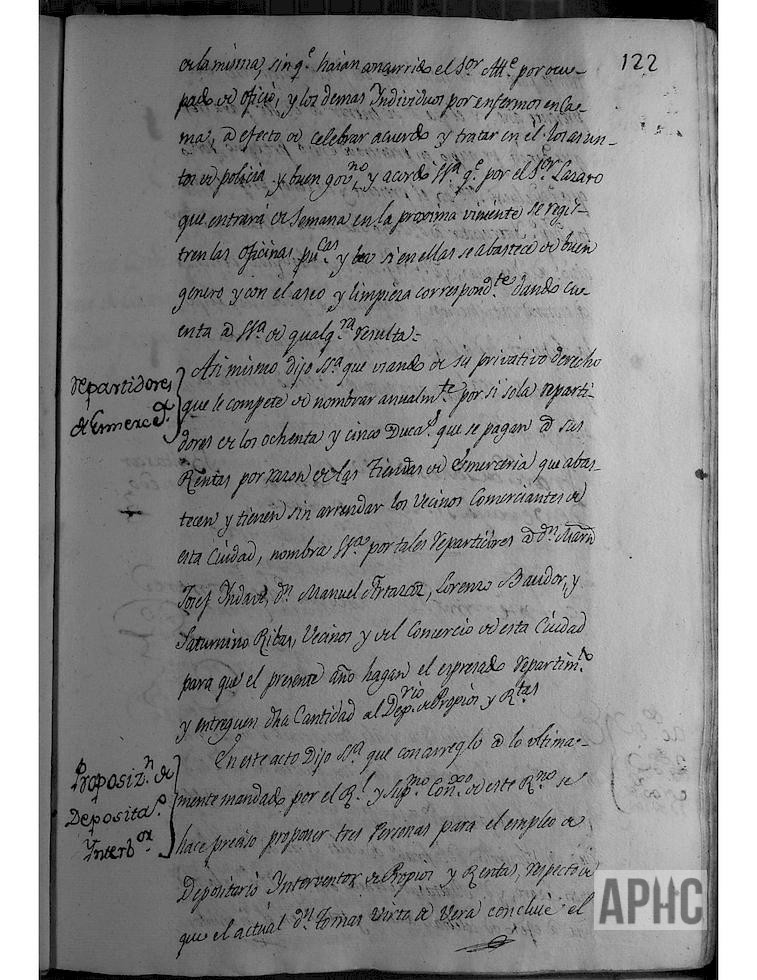 122
de la misma, sin q.e haian concurrido el S.or Alc.e por ocu-
pado de oficio, y los demas Individuos por enfermos en ca-
ma, a efecto de celebrar acuerdo y tratar en él los asun-
tos de policia y buen gov.no y acordó SS.a q.e por el S.or Lazaro
que entrará de semana en la proxima viniente se regis-
tren las oficinas pu.cas y vea si en ellas se abastece de buen
genero y con el aseo y limpieza correspond.te dando cu-
enta a SS.a de qualq.ra resulta=
repartidores
de Ermerc.a
Asi mismo dijo SS.a que usando de su privativo derecho
que le compete de nombrar anualm.te por si sola reparti-
dores de los ochenta y cinco Duca.s que se pagan a sus
Rentas por razon de las Tiendas de Esmerceria que abas-
tecen y tienen sin arrendar los Vecinos Comerciantes de
esta Ciudad, nombra SS.a por tales repartidores a d.n Martin
Josef, d.n Manuel, Lorenzo, y
Saturnino Ribas, Vecinos y del Comercio de esta Ciudad
para que el presente año hagan el espresado repartim.to
y entreguen dha Cantidad al Dep.rio de Propios y R.tas
Proposiz.n de
Deposita.o
Ynterb.or
En este acto Dijo SS.a que con arreglo a lo ultima-
mente mandado por el R.l y Sup.mo Con.xo de este R.no se
hace preciso proponer tres Personas para el empleo de
Depositario Interventor de Propios y Rentas, respecto de
que el actual d.n Tomas Virto de Vera concluie el
APHC